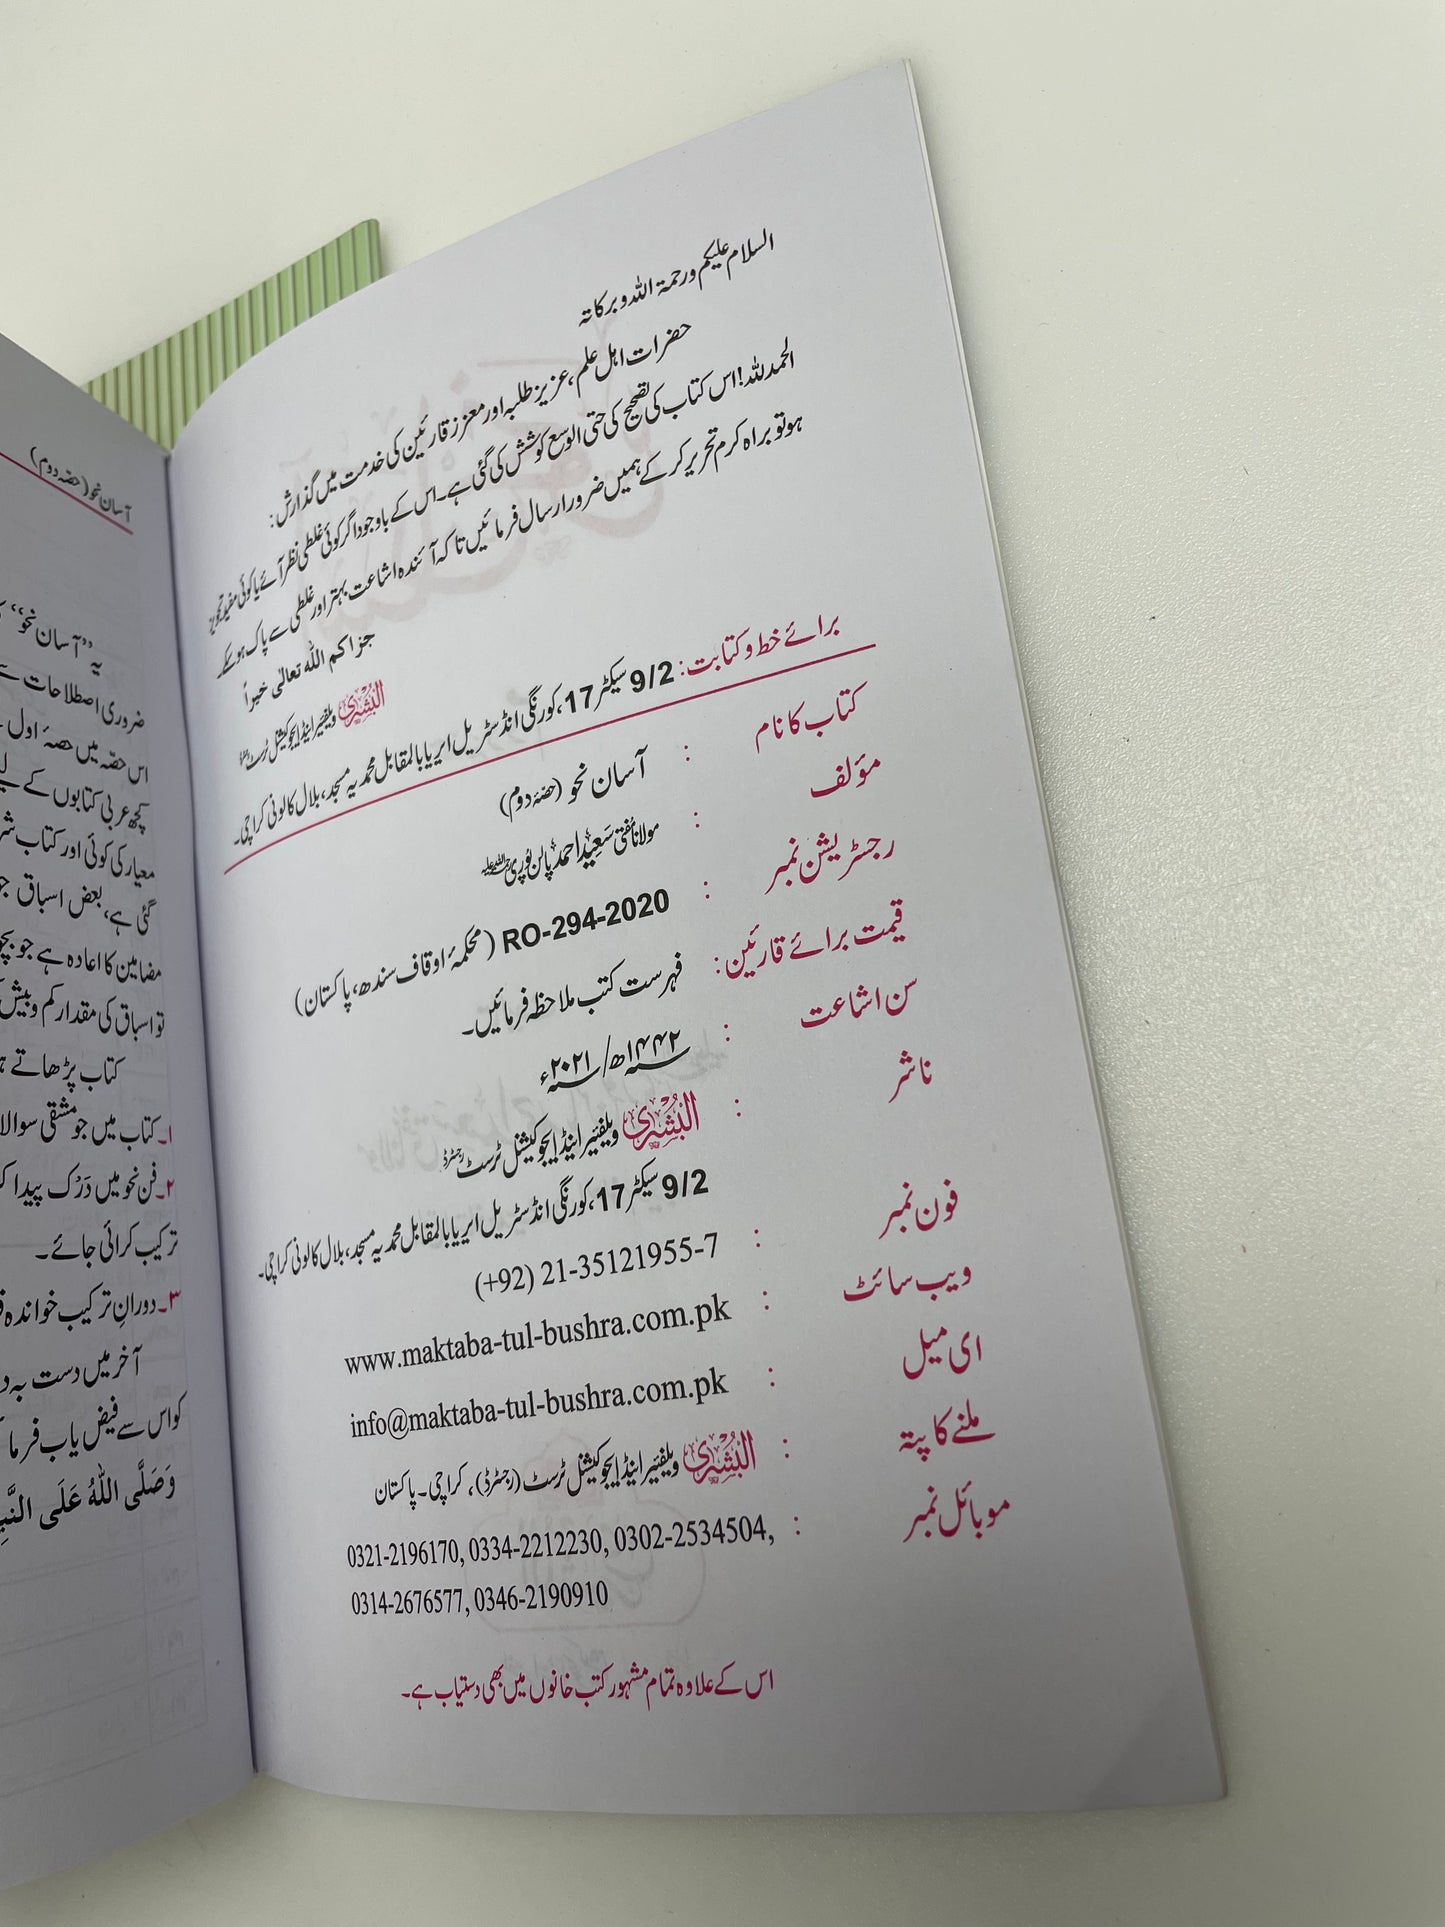 السلام علیکم ورحمۃ اللہ وبرکاتہ
حضرات اہل علم، عزیز طلبہ اور معزز قارئین کی خدمت میں گذارش:
الحمدللہ! اس کتاب کی تصحیح کی حتی الوسع کوشش کی گئی ہے۔ اس کے باوجود اگر کوئی غلطی نظر آئے یا کوئی مفید تجویز
ہو تو براہ کرم تحریر کرکے ہمیں ضرور ارسال فرمائیں تاکہ آئندہ اشاعت بہتر اور غلطی سے پاک ہوسکے۔
جزاکم اللہ تعالٰی خیراً
البُشریٰ ویلفیئر اینڈ ایجوکیشنل ٹرسٹ رجسٹرڈ
برائے خط و کتابت: 9/2 سیکٹر 17، کورنگی انڈسٹریل ایریا بالمقابل محمدیہ مسجد، بلال کالونی کراچی۔
کتاب کا نام : آسان نحو (حصّۂ دوم)
مؤلف : مولانا مُفتی سَعِید احمد پالن پُوری رحمۃ اللہ علیہ
رجسٹریشن نمبر : RO-294-2020 (محکمۂ اوقاف سندھ، پاکستان)
قیمت برائے قارئین: فہرست کتب ملاحظہ فرمائیں۔
سن اشاعت : ۱۴۴۲ھ/ ۲۰۲۱ء
ناشر : البُشریٰ ویلفیئر اینڈ ایجوکیشنل ٹرسٹ رجسٹرڈ
9/2 سیکٹر 17، کورنگی انڈسٹریل ایریا بالمقابل محمدیہ مسجد، بلال کالونی کراچی۔
فون نمبر : (+92) 21-35121955-7
ویب سائٹ : www.maktaba-tul-bushra.com.pk
ای میل : info@maktaba-tul-bushra.com.pk
ملنے کا پتہ : البُشریٰ ویلفیئر اینڈ ایجوکیشنل ٹرسٹ (رجسٹرڈ)، کراچی۔ پاکستان
موبائل نمبر : 0321-2196170, 0334-2212230, 0302-2534504,
0314-2676577, 0346-2190910
اس کے علاوہ تمام مشہور کتب خانوں میں بھی دستیاب ہے۔
آسان نحو (حصّہ دوم)
یہ ”آسان نحو“
ضروری اصطلاحات
اس حصّہ میں حصۂ اول
کچھ عربی کتابوں کے
معیار کی کوئی اور کتاب
گئی ہے، بعض اسباق
مضامین کا اعادہ ہے جو
تو اسباق کی مقدار کم و بیش
کتاب پڑھاتے
۱۔ کتاب میں جو مشقی
۲۔ فن نحو میں دَرْک پیدا
ترکیب کرائی جائے۔
۳۔ دورانِ ترکیب خواندہ
آخر میں دست بہ
کو اس سے فیض یاب فرما
وَصَلَّى اللّٰهُ عَلَى